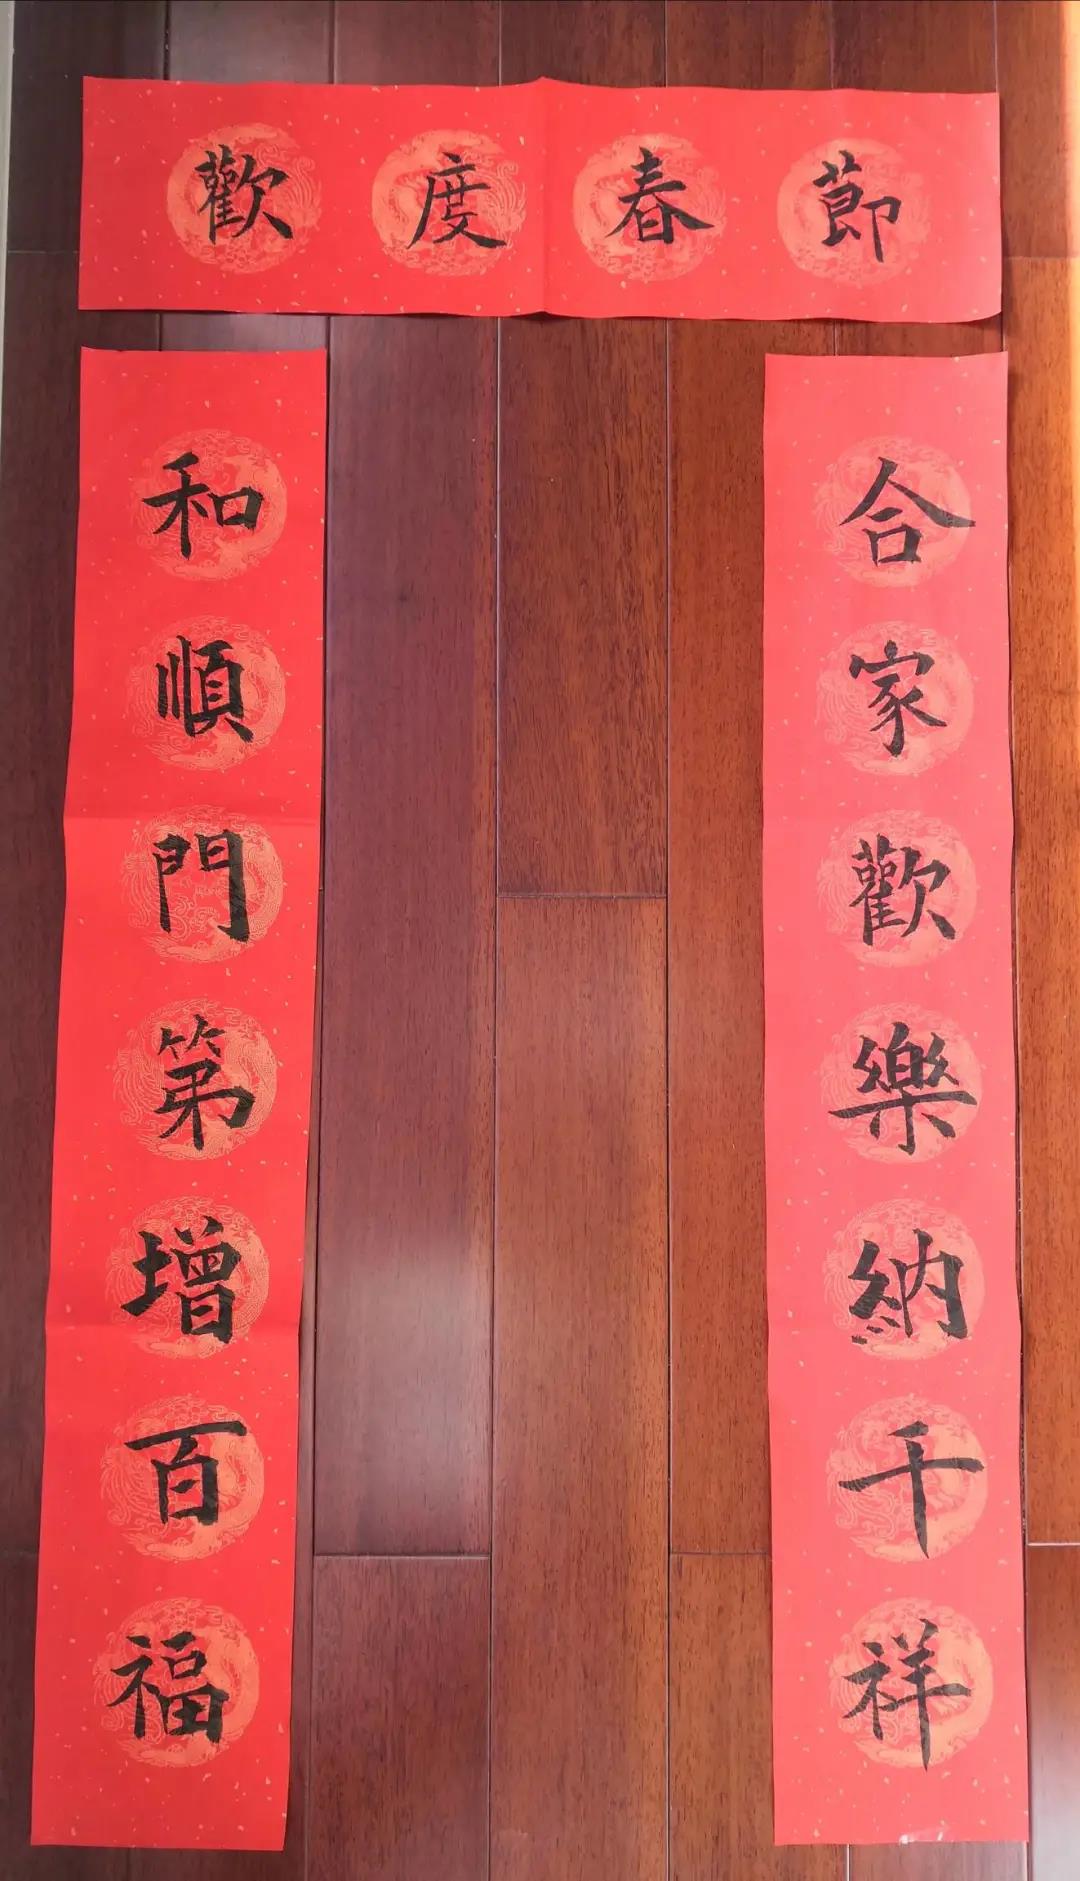 歡度春節
和順門第增百福
合家歡樂納千祥